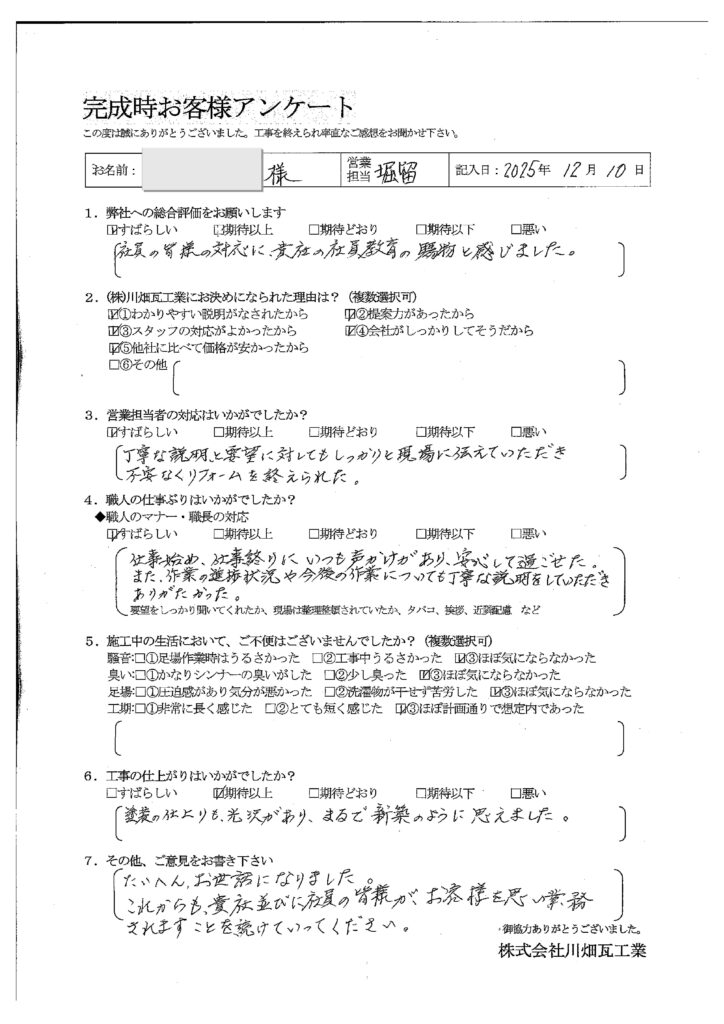 完成時お客様アンケート
この度は誠にありがとうございました。工事を終えられ率直なご感想をお聞かせ下さい。
お名前： 様 営業担当 堀留 記入日：2025年 12月 10日
1．弊社への総合評価をお願いします
☑すばらしい □期待以上 □期待どおり □期待以下 □悪い
社員の皆様の対応に、貴社の社員教育の賜物と感じました。
2．(株)川畑瓦工業にお決めになられた理由は？（複数選択可）
☑①わかりやすい説明がなされたから ☑②提案力があったから
☑③スタッフの対応がよかったから ☑④会社がしっかりしてそうだから
☑⑤他社に比べて価格が安かったから
□⑥その他
3．営業担当者の対応はいかがでしたか？
☑すばらしい □期待以上 □期待どおり □期待以下 □悪い
丁寧な説明と要望に対してもしっかりと現場に伝えていただき
不安なくリフォームを終えられた。
4．職人の仕事ぶりはいかがでしたか？
◆職人のマナー・職長の対応
☑すばらしい □期待以上 □期待どおり □期待以下 □悪い
仕事始め、仕事終りに いつも声かけがあり、安心して過ごせた。
また、作業の進捗状況や今後の作業についても丁寧な説明をしていただき
ありがたかった。
要望をしっかり聞いてくれたか、現場は整理整頓されていたか、タバコ、挨拶、近隣配慮 など
5．施工中の生活において、ご不便はございませんでしたか？（複数選択可）
騒音:□①足場作業時はうるさかった □②工事中うるさかった ☑③ほぼ気にならなかった
臭い:□①かなりシンナーの臭いがした □②少し臭った ☑③ほぼ気にならなかった
足場:□①圧迫感があり気分が悪かった □②洗濯物が干せず苦労した ☑③ほぼ気にならなかった
工期:□①非常に長く感じた □②とても短く感じた ☑③ほぼ計画通りで想定内であった
6．工事の仕上がりはいかがでしたか？
□すばらしい ☑期待以上 □期待どおり □期待以下 □悪い
塗装の仕上りも、光沢があり、まるで新築のように思えました。
7．その他、ご意見をお書き下さい
たいへん、お世話になりました。
これからも、貴社並びに社員の皆様が、お客様を思い業務
されますことを続けていってください。
御協力ありがとうございました。
株式会社川畑瓦工業